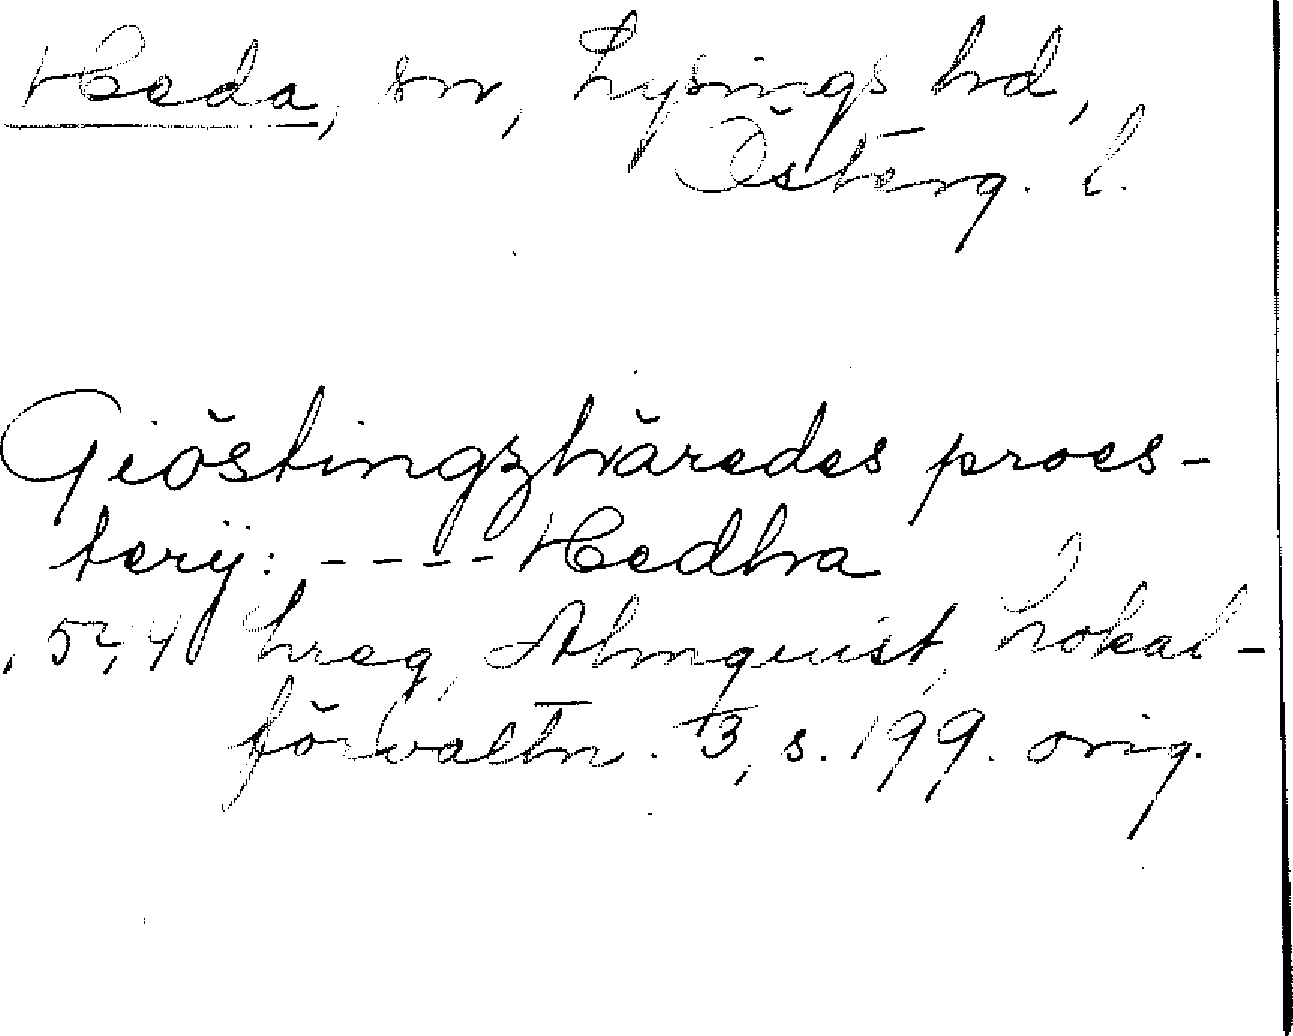 Heda, sn, Lysings hd,
Österg. l.
Giöstingzhäredes proes-
terij: ---- Hedha
Lreg, Almquist, Lokal-
förvaltn. 3, s. 199. orig.